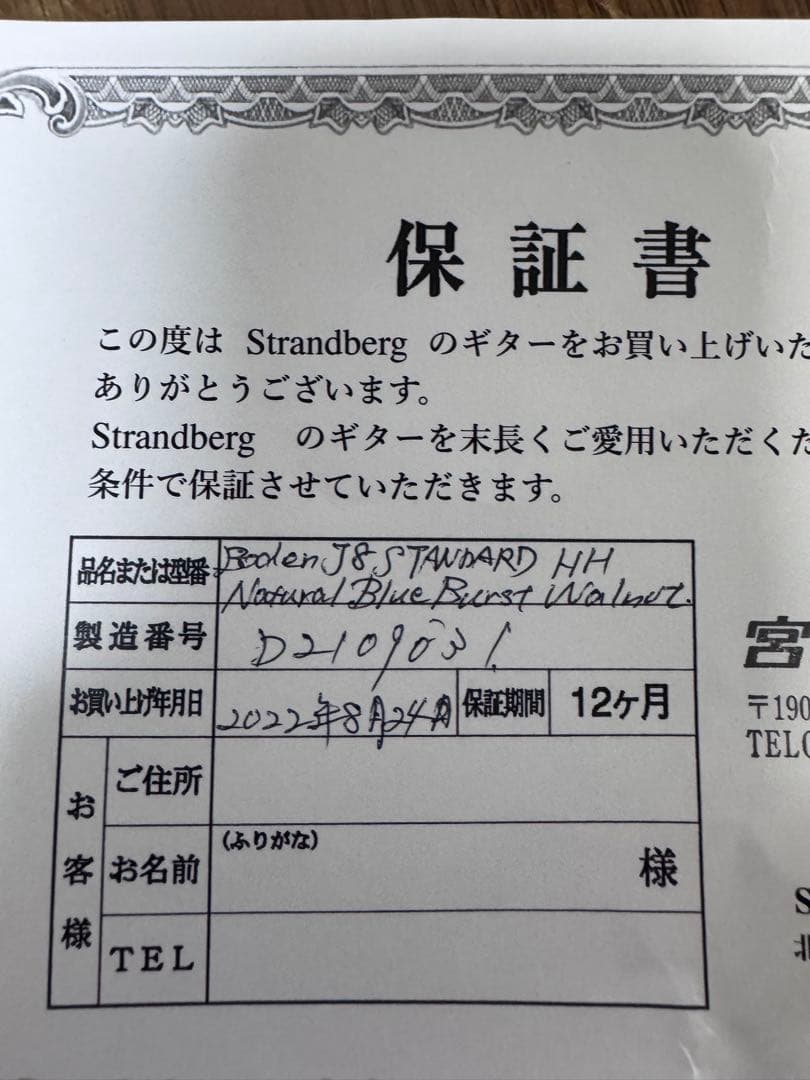 保証書
この度は Strandberg のギターをお買い上げいた
ありがとうございます。
Strandberg のギターを末長くご愛用いただくた
条件で保証させていただきます。
品名または型番 Boden J8 STANDARD HH
Natural Blue Burst Walnut.
製造番号 D2109031
お買い上げ年月日 2022年8月24日 保証期間 12ヶ月
宮
〒190
TEL0
お客様
ご住所
お名前 (ふりがな) 様
TEL
S
北